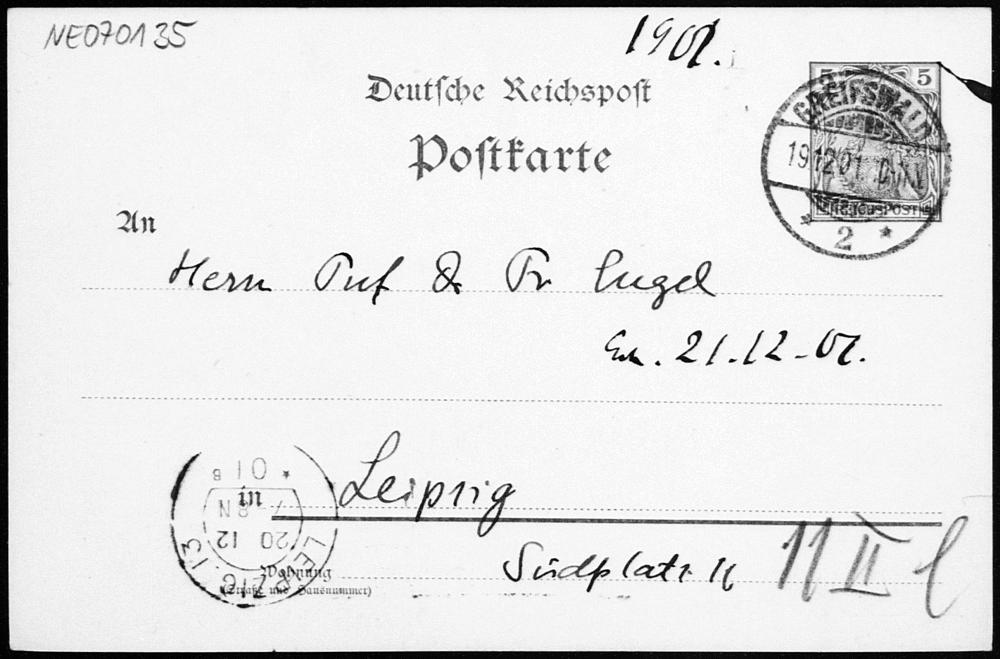 NE070135
1901.
Deutsche Reichspost
5 5
GREIFSWALD
19.12.01
REICHSPOST
* 2 *
Postkarte
An
Herrn Prof Dr Fr Engel
Erh. 21.12-01.
* 01 B
in
Leipzig
7-8 N
20 12
LEIPZIG 13
Wohnung
(Straße und Hausnummer)
Südplatz 11
11 II l